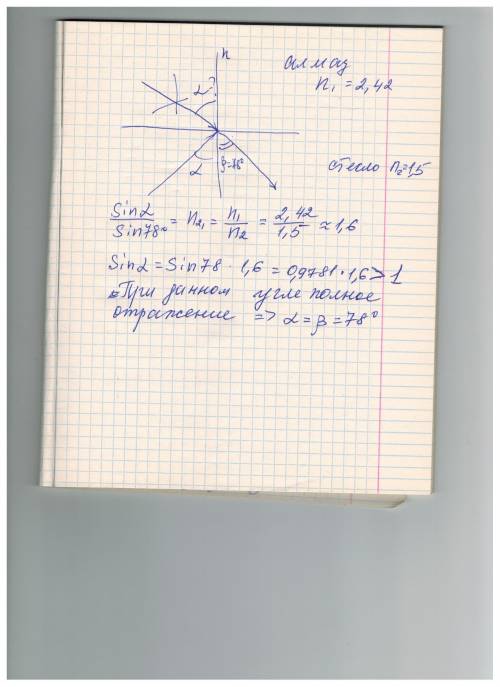 n
алмаз
n₁ = 2,42
α ?
α
β=78°
стекло n₂=1,5
Sinα/Sin78° = n₂₁ = n₁/n₂ = 2,42/1,5 ≈ 1,6
Sinα = Sin78 · 1,6 = 0,9781 · 1,6 > 1
При данном угле полное
отражение => α = β = 78°